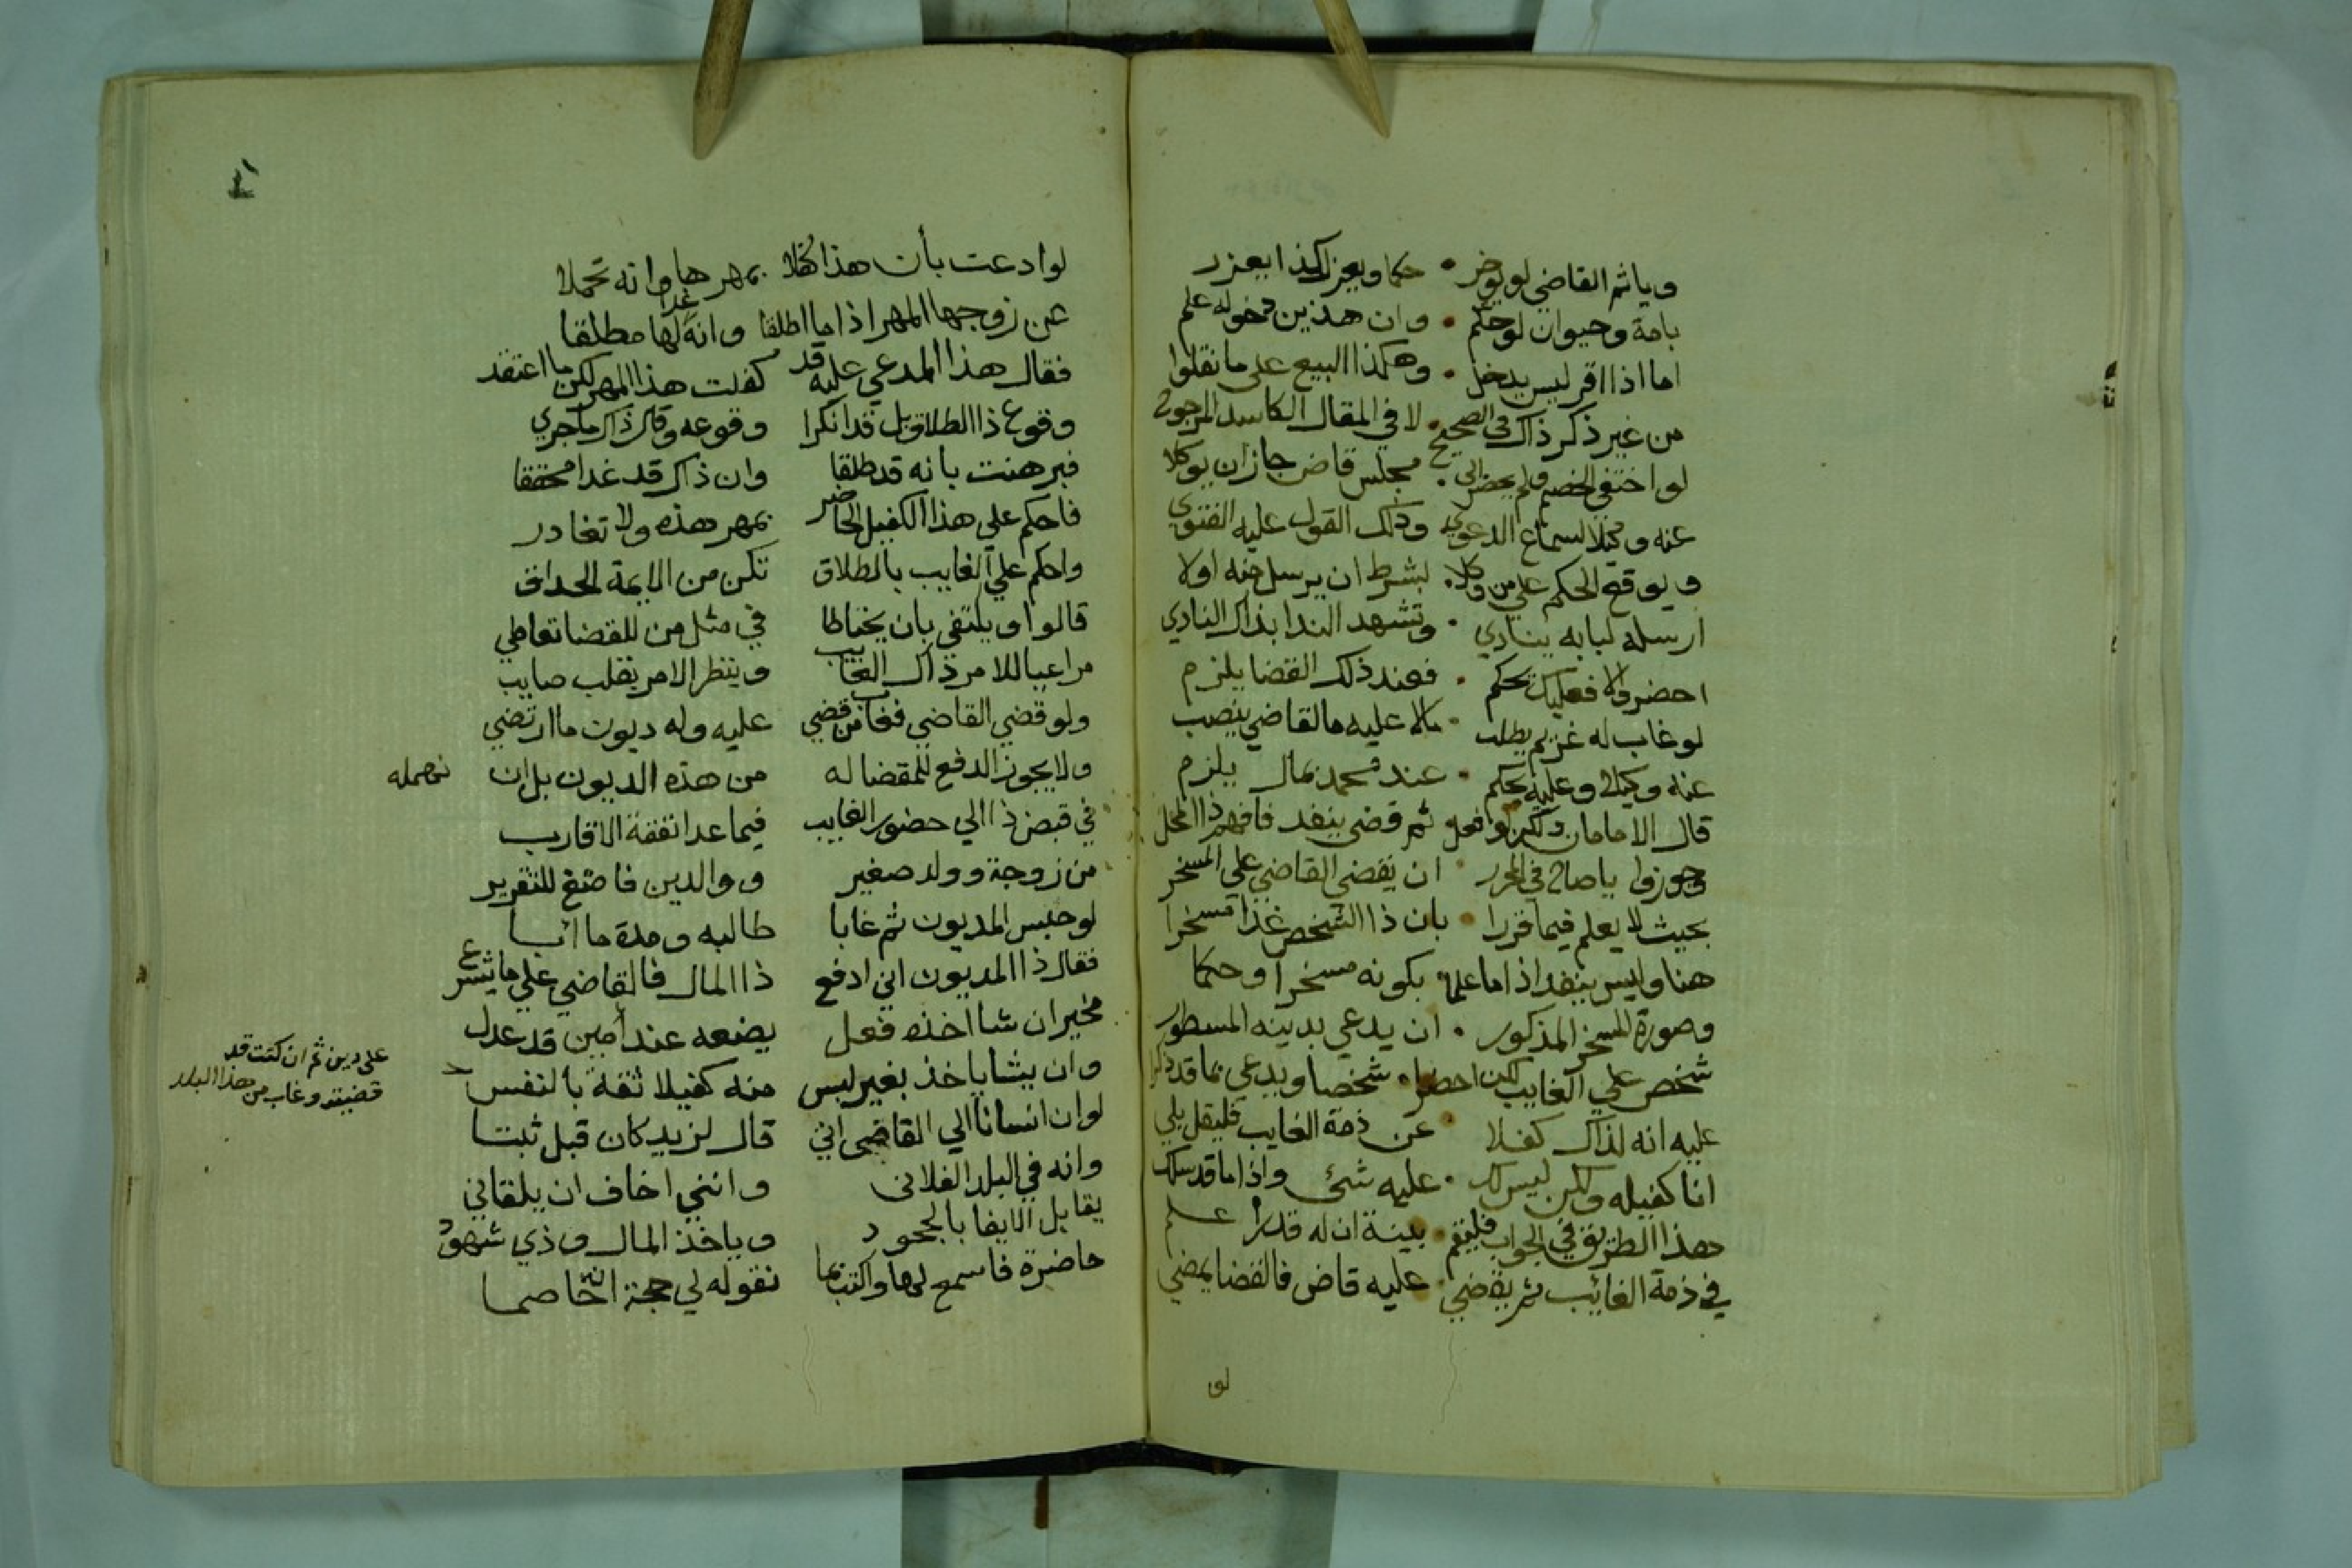 وياثم القاضي لو يوخر • حكما ويعزل كذا يعزر
بامة وحيوان لو حكم • وان هذين دخوله علم
اما اذا اقر ليس يدخل • وهكذا البيع على ما نقلوا
من غير ذكر ذاك في الصحيح • لا في المقال الكاسد المرجوح
لو اختفي الخصم ولم يحضر الى • مجلس قاض جاز ان يوكلا
عنه وكيلا لسماع الدعوي وذلك القول عليه الفتوي
ويوقع الحكم علي من وكلا • بشرط ان يرسل منه اولا
ارسله لبابه ينادي • وتشهد الندا بذاك النادي
احضر والا فعليك يحكم • فعند ذلك القضا يلزم
لو غاب له غريم يطلب • مالا عليه مالقاضي ينصب
عنه وكيلا وعليه يحكم • عند محمد بمال يلزم
قال الامامان ولكن لو فعل ثم قضى ينفد فافهم ذا المحل
وجوزوا ياصاح في المحرر • ان يقضي القاضي على المسخر
بحيث لا يعلم فيما قررا • بان ذا الشخص غدا مسخرا
هنا وليس ينفد اذا ما علما بكونه مسخرا وحكما
وصورة المسخر المذكور • ان يدعي بدينه المسطور
شخص علي الغايب لكن احضرا • شخصا ويدعي بما قد ذكرا
عليه انه لذاك كفلا • عن ذمة الغايب فليقل بلي
انا كفيله ولكن ليس لك • عليه شئ واذا ما قد سلك
هذا الطريق في الجواب فليقم • بينة ان له قدرا علم
في ذمة الغائب ثم يقضي • عليه قاض فالقضا يمضي
لو
لو ادعت بأن هذا كفلا بمهرها وانه تحملا
عن زوجها المهر اذا ما اطلقا وانه غدا لها مطلقا
فقال هذا المدعي عليه قد كفلت هذا المهر لكن ما اعتقد
وقوع ذا الطلاق بل قد انكرا وقوعه وقال ذاك ما جري
فبرهنت بانه قد طلقا وان ذاك قد غدا محققا
فاحكم علي هذا الكفيل الحاضر بمهر هذه ولا تغادر
واحكم علي الغايب بالطلاق تكن من الايمة الحداق
قالوا ويلتفي بان يحتاطا في مثل من للقضا تعاطي
مراعيا للامر ذاك الغايب وينظر الامر بقلب صايب
ولو قضي القاضي فغاب من قضي عليه وله ديون ما ارتضي
ولا يجوز الدفع للمقضا له من هذه الديون بل ان نمهمله
في قبض ذا الي حضور الغايب فيما عدا نفقة الاقارب
من زوجة وولد صغير ووالدين فاصغ للتقرير
لو حبس المديون ثم غابا طالبه ومدة ما آبا
فقال ذا المديون اني ادفع ذا المال فالقاضي علي ما يشرع
مخير ان شا اخذه فعل يضعه عند أمين قد عدل
وان يشا ياخذ بغير لبس منه كفيلا ثقة بالنفس
لو ان انسانا الي القاضي اتي قال لزيد كان قبل ثبتا
على دين ثم ان كنت قد
قضيته وغاب من هذا البلد
وانه في البلد الفلاني وانني اخاف ان يلقاني
يقابل الايفا بالجحود وياخذ المال وذي شهود
حاضرة فاسمع لها واكتب بما نقوله لي حجة ان خاصما